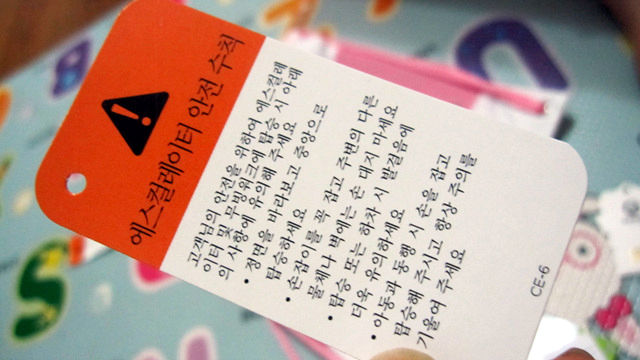 에스컬레이터 안전 수칙
고객님의 안전을 위하여 에스컬레
이터 및 무빙워크에 탑승 시 아래
의 사항에 유의해 주세요
• 정면을 바라보고 중앙으로
탑승하세요
• 손잡이를 꼭 잡고 주변의 다른
물체나 벽에는 손 대지 마세요
• 탑승 또는 하차 시 발걸음에
더욱 유의하세요
• 아동과 동행 시 손을 잡고
탑승해 주시고 항상 주의를
기울여 주세요
CE-6